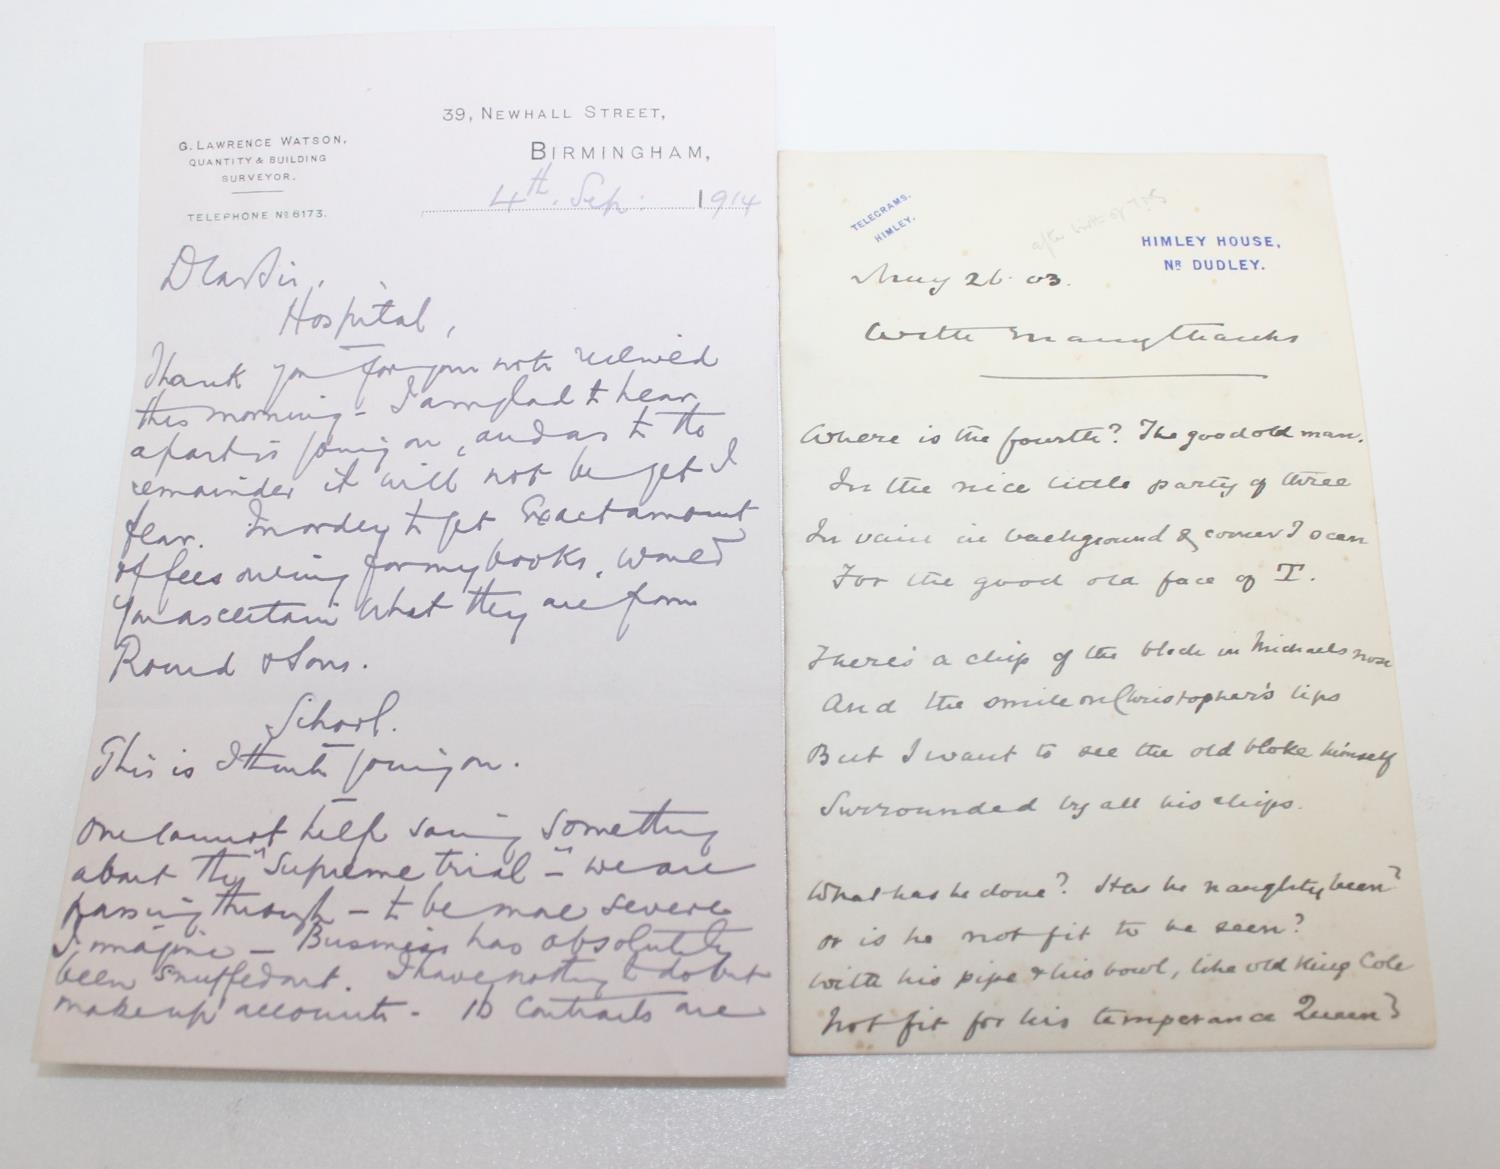 39, NEWHALL STREET,
G. LAWRENCE WATSON,
QUANTITY & BUILDING
SURVEYOR.
BIRMINGHAM,
4th. Sep: 1914
TELEPHONE No 6173.
Dear Sir,
Hospital,
Thank you for your note received
this morning - I am glad to hear
apart is going on, and as to the
remainder it will not be yet I
fear. In order to get exact amount
of fees owing for my books, would
you ascertain what they are from
Round & Sons.
School.
This is I think going on.
One cannot help saying something
about the "Supreme trial" - we are
passing through - to be more severe
I imagine - Business has absolutely
been snuffed out. I have nothing to do but
make up accounts - 10 Contracts are
TELEGRAMS.
HIMLEY.
after birth of
HIMLEY HOUSE,
NR DUDLEY.
May 26. 03.
With many thanks
Where is the fourth? The good old man,
In the nice little party of three
In vain in background & corner I scan
For the good old face of T.
There's a chip of the block in Michaels nose
And the smile on Christopher's lips
But I want to see the old bloke himself
Surrounded by all his chips.
What has he done? Has he naughty been?
or is he not fit to be seen?
With his pipe & his bowl, like old King Cole
Not fit for his temperance Queen?